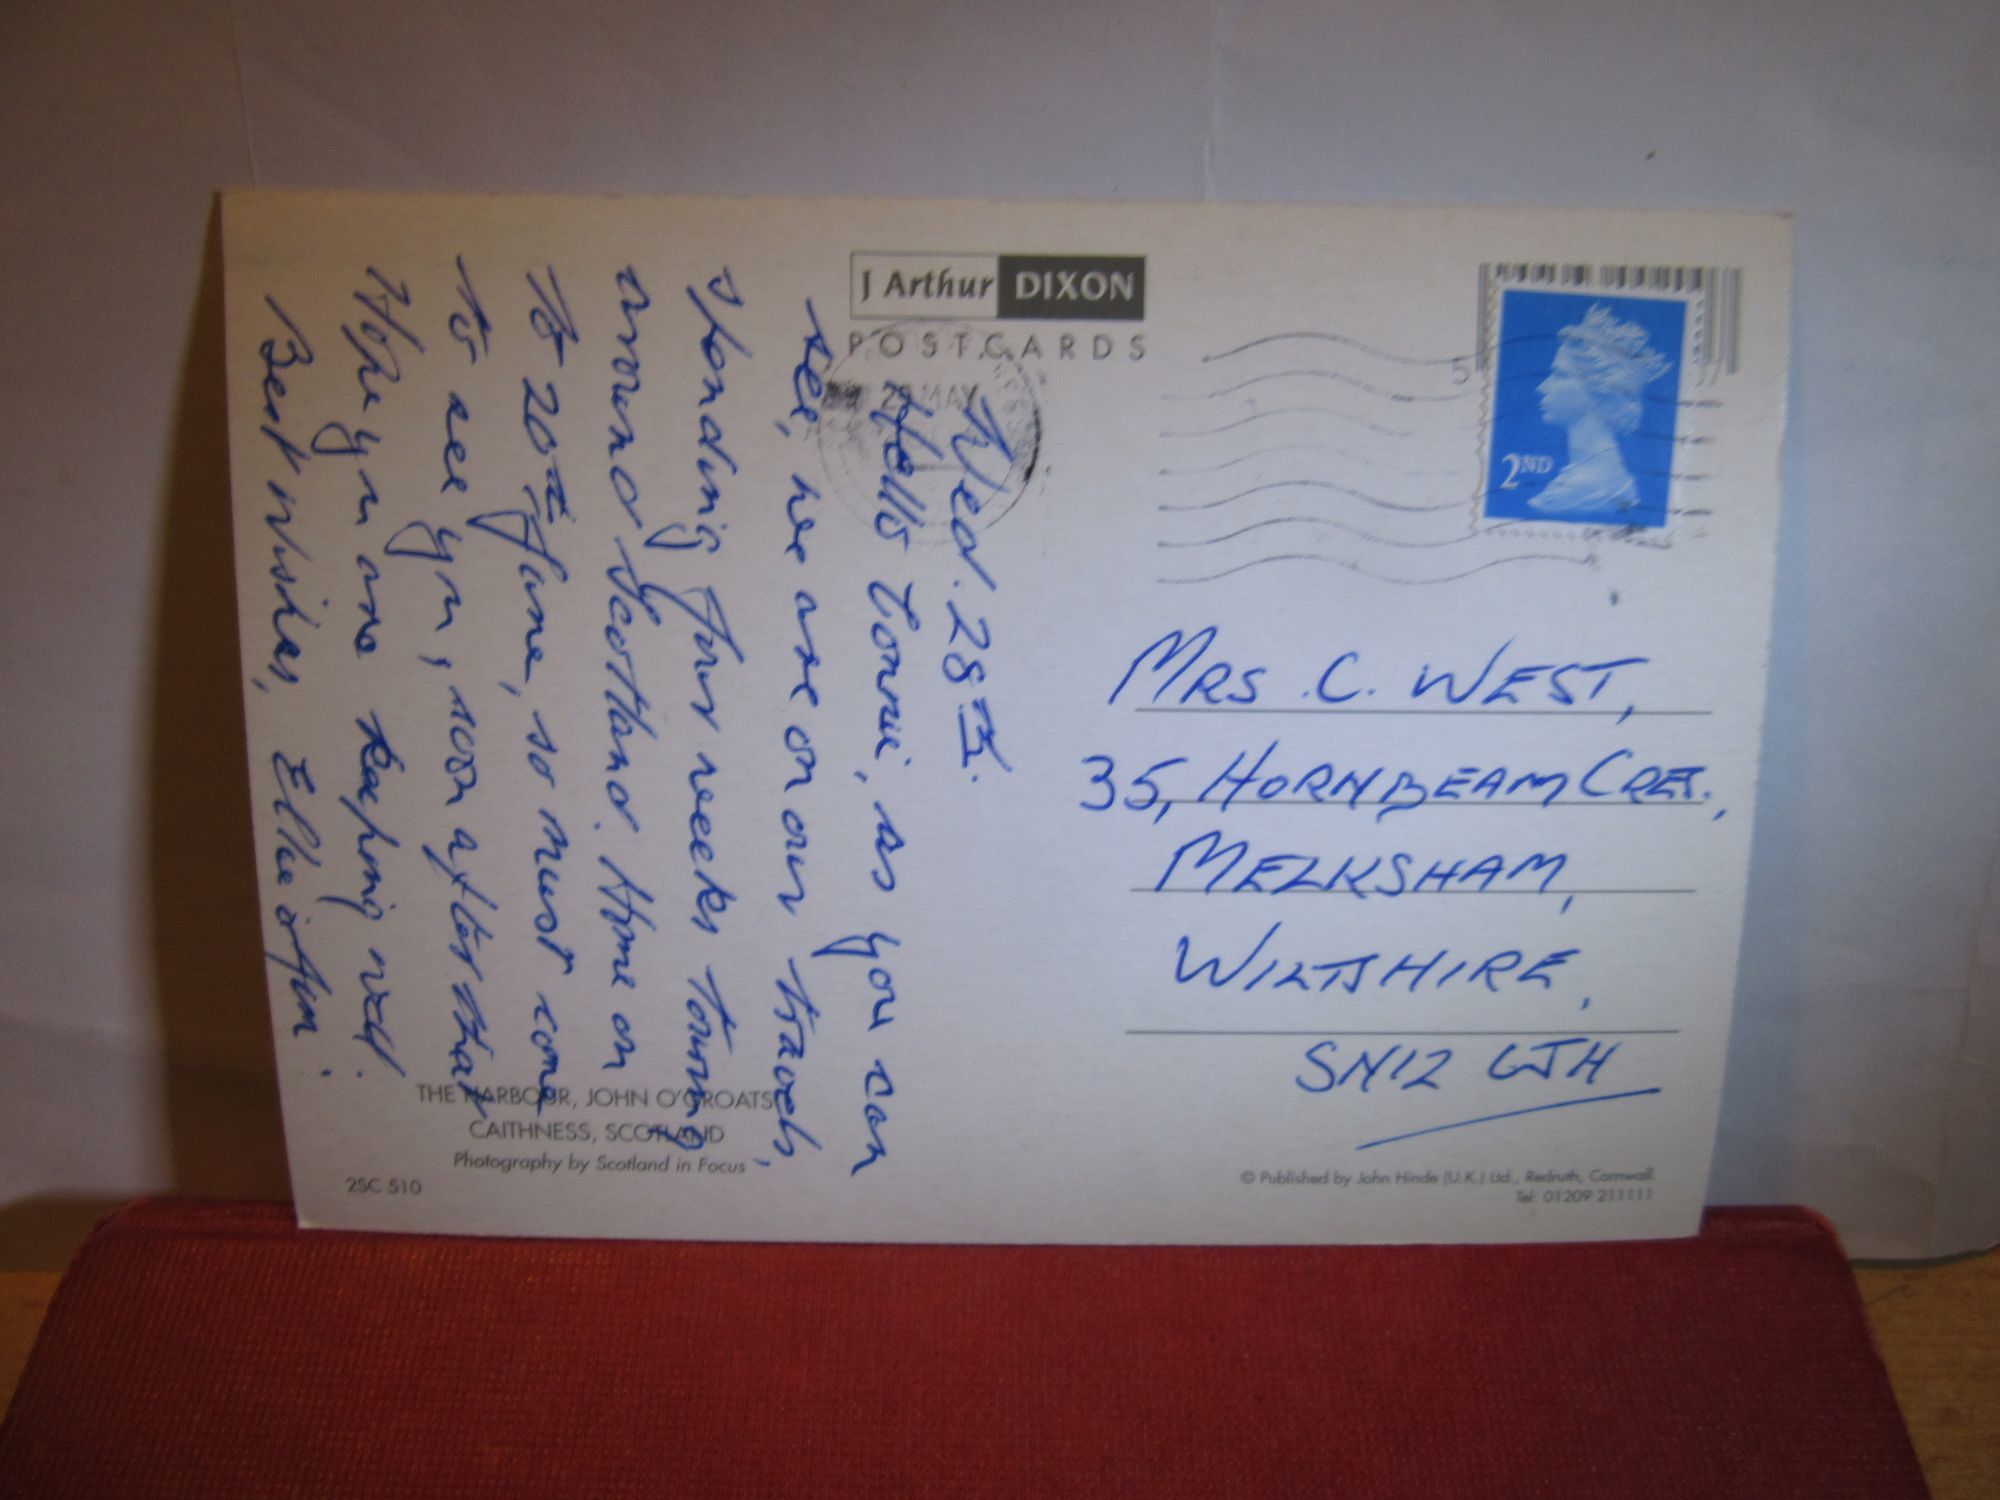 J Arthur DIXON
POSTCARDS
MAY
2ND
Wed. 28th.
Hello Connie, as you can
see, we are on our travels,
spending four weeks touring
around Scotland. Home on
to 20th June, so must come
to see you, soon after that
Hope you are keeping well.
Best wishes, Ellie & Jim.
MRS. C. WEST,
35, HORNBEAM CRES.,
MELKSHAM,
WILTSHIRE,
SN12
THE HARBOUR, JOHN O'GROATS
CAITHNESS, SCOTLAND
Photography by Scotland in Focus
2SC 510
© Published by John Hinde (U.K.) Ltd., Redruth, Cornwall.
Tel: 01209 211111